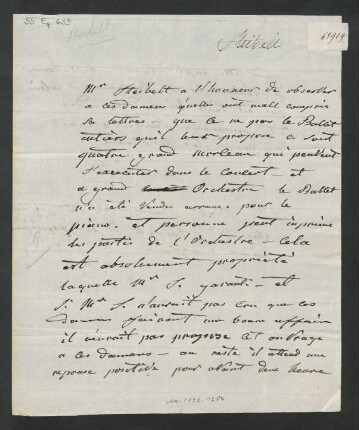 55 Ep 633
Steibelt
Steibelt
Mr Steibelt a l'honneur de observer
a ces dames qu'elles ont mall compris
sa lettres - que ce ne pas le Ballet
entiers qu'il leur propose a sont
quatre grand morceau qui peuvent
s'executer dans le Concert - et
a grand Orchestre le Ballet
n'a été vendu comme pour le
piano - et personne peut imprime
les partie de l'Orchestre - Cela
est absolument propriété
laquelle Mr S. garanti - et
si Mr S. n'auroit pas cru que ces
dames faisoient une bonne affaire
il n'auroit pas propose cet ouvrage
a ces dames - au reste il attend une
reponse positive pour avant deux heure